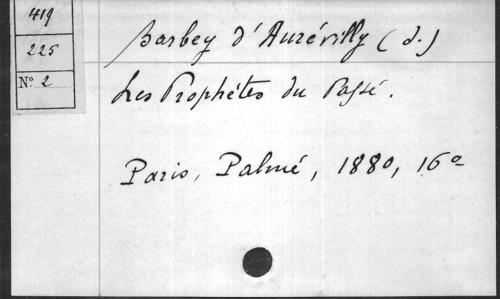 419
225
N° 2
Barbey d'Aurévilly (J.)
Les Prophétes du Passé.
Paris, Palmé, 1880, 16°